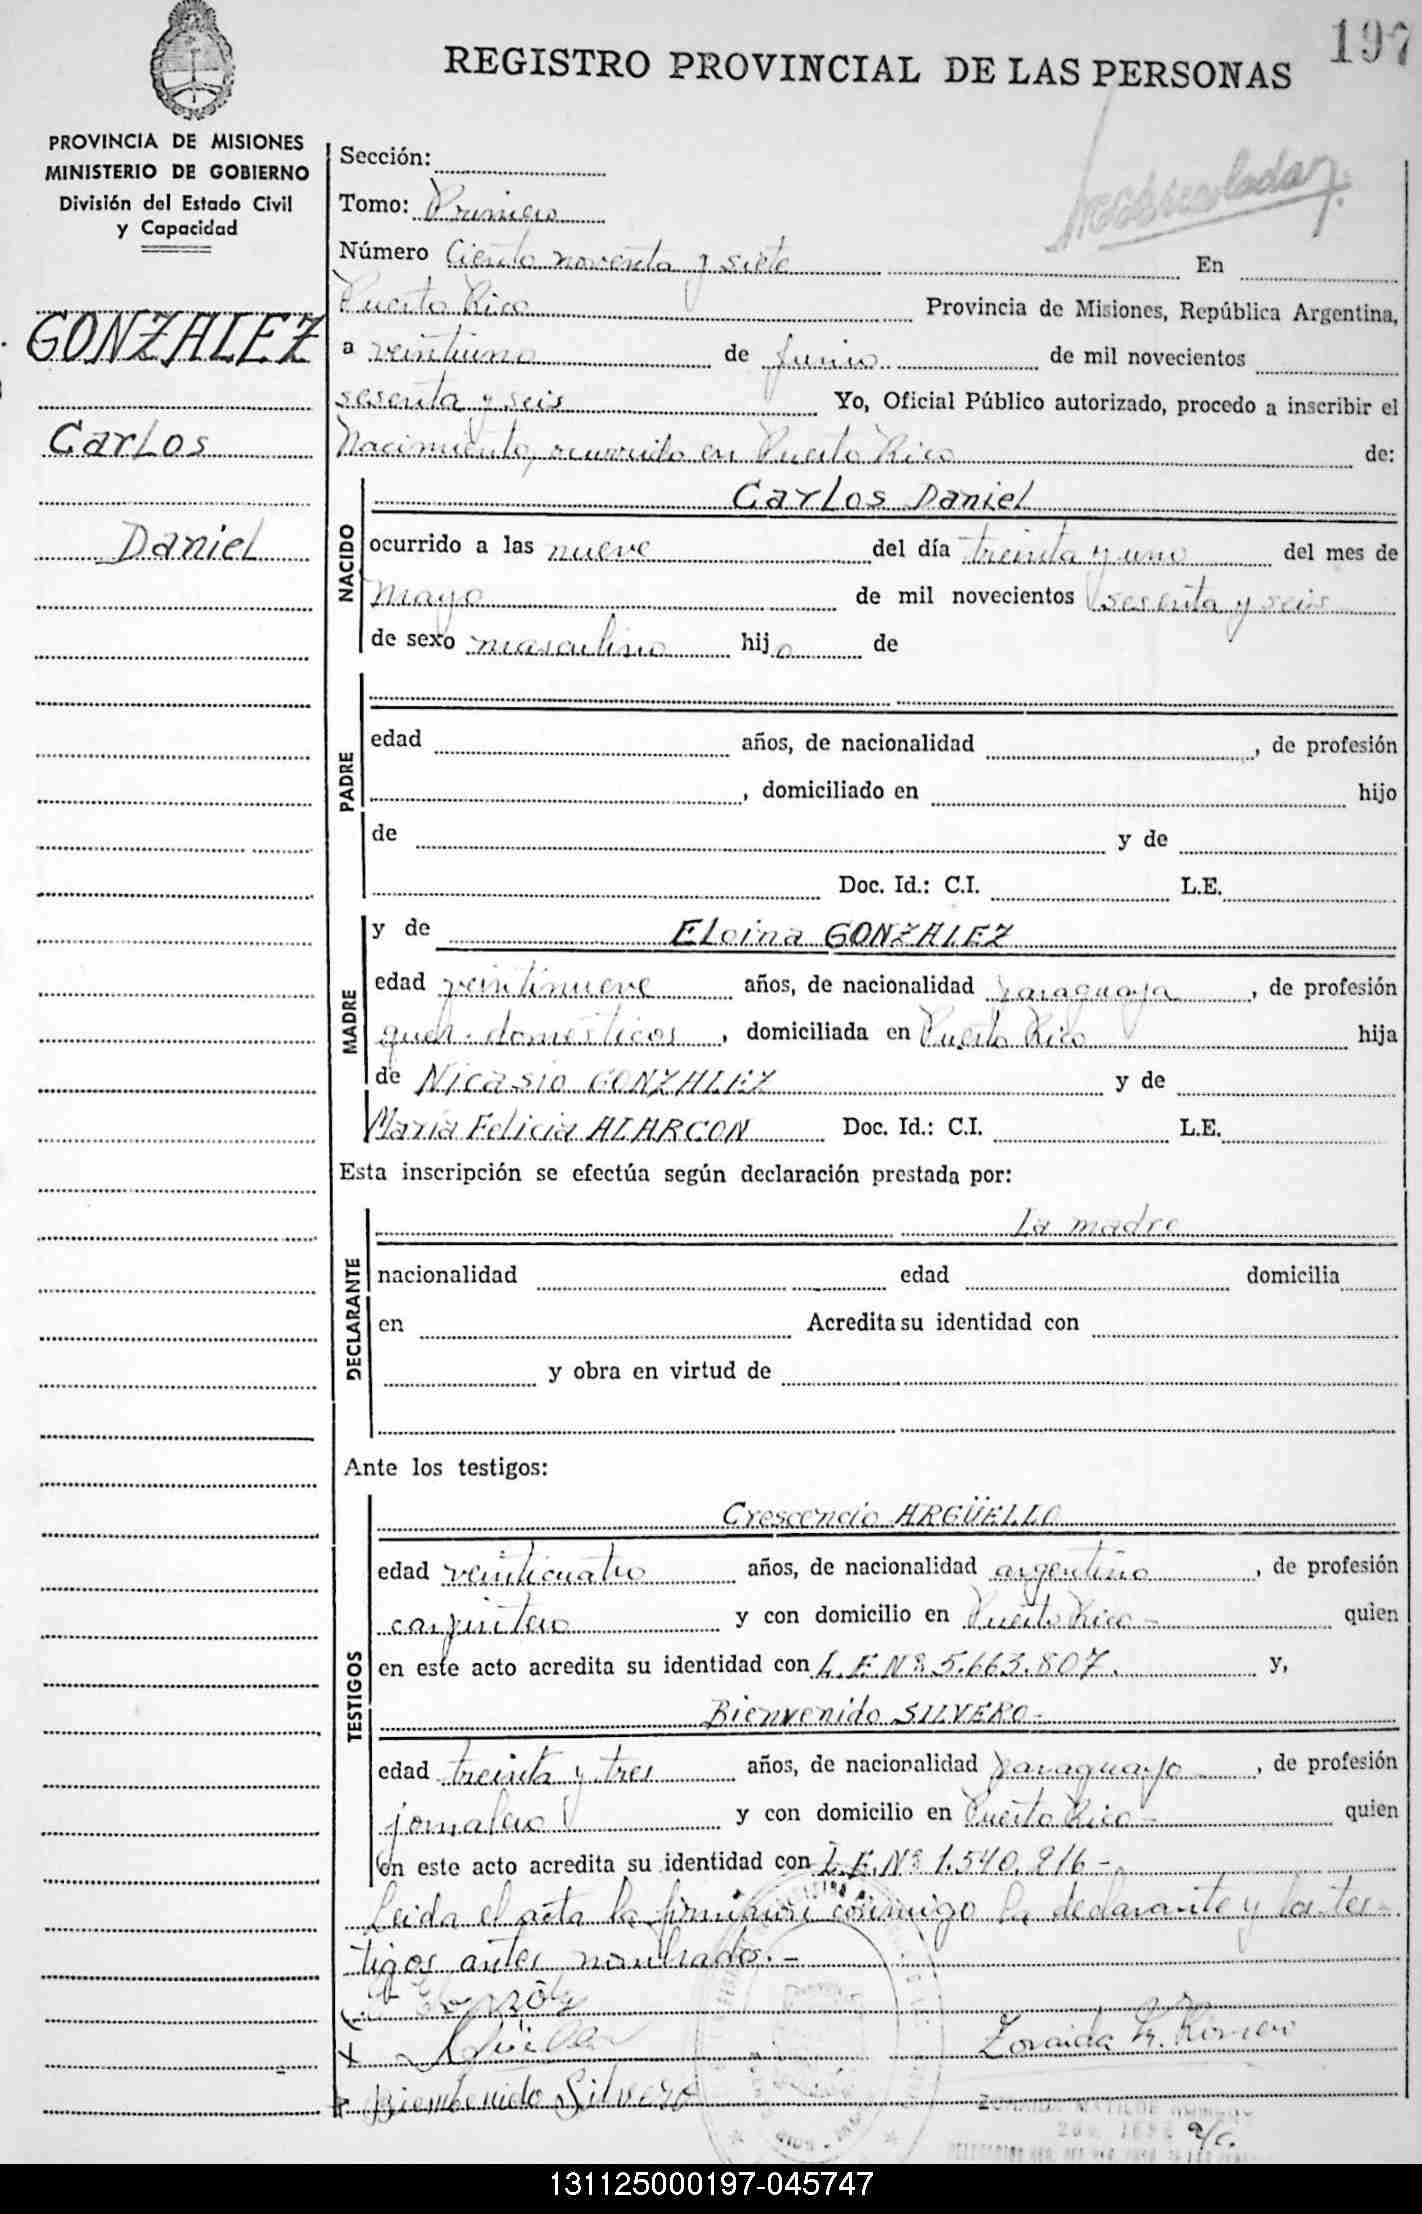 197
REGISTRO PROVINCIAL DE LAS PERSONAS
PROVINCIA DE MISIONES
MINISTERIO DE GOBIERNO
División del Estado Civil
y Capacidad
GONZALEZ
Carlos
Daniel
Sección:
Tomo: Primero
Número Ciento noventa y siete En
Puerto Rico Provincia de Misiones, República Argentina,
a veintiuno de Junio de mil novecientos
sesenta y seis Yo, Oficial Público autorizado, procedo a inscribir el
Nacimiento, ocurrido en Puerto Rico de:
NACIDO
Carlos Daniel
ocurrido a las nueve del día treinta y uno del mes de
mayo de mil novecientos sesenta y seis
de sexo masculino hijo de
PADRE
edad años, de nacionalidad , de profesión
, domiciliado en hijo
de y de
Doc. Id.: C.I. L.E.
MADRE
y de Eloina GONZALEZ
edad veintinueve años, de nacionalidad paraguaya, de profesión
queh. domésticos, domiciliada en Puerto Rico hija
de Nicasio GONZALEZ y de
María Felicia ALARCON Doc. Id.: C.I. L.E.
Esta inscripción se efectúa según declaración prestada por:
DECLARANTE
La madre
nacionalidad edad domicilia
en Acredita su identidad con
y obra en virtud de
Ante los testigos:
TESTIGOS
Crescencio ARGÜELLO
edad veinticuatro años, de nacionalidad argentino, de profesión
carpintero y con domicilio en Puerto Rico- quien
en este acto acredita su identidad con L.E.Nº 5.663.807. y,
Bienvenido SILVERO-
edad treinta y tres años, de nacionalidad paraguayo, de profesión
jornalero y con domicilio en Puerto Rico- quien
en este acto acredita su identidad con L.E.Nº 1.540.216-
Leida el acta la firman conmigo la declarante y los tes-
tigos antes nombrados.-
Zoraida M. Romero
Biembenido Silvero
a/c.
131125000197-045747